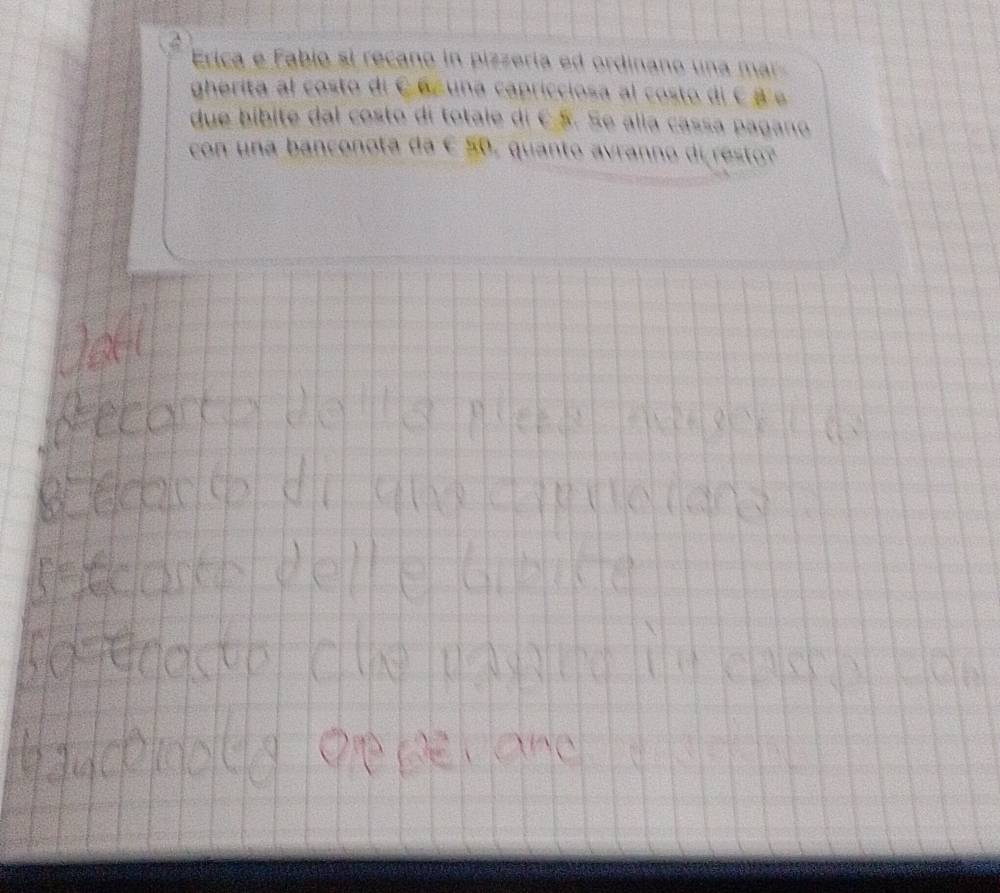 2
Erica e Fabio si recano in pizzeria ed ordinano una mar-
gherita al costo di € 6, una capricciosa al costo di € 8 e
due bibite dal costo di totale di € 5. Se alla cassa pagano
con una banconota da € 50, quanto avranno di resto?
Dati
costo della
di una
5=€ costo delle bibite
50=€ costo che pagano in cassa con
banconota